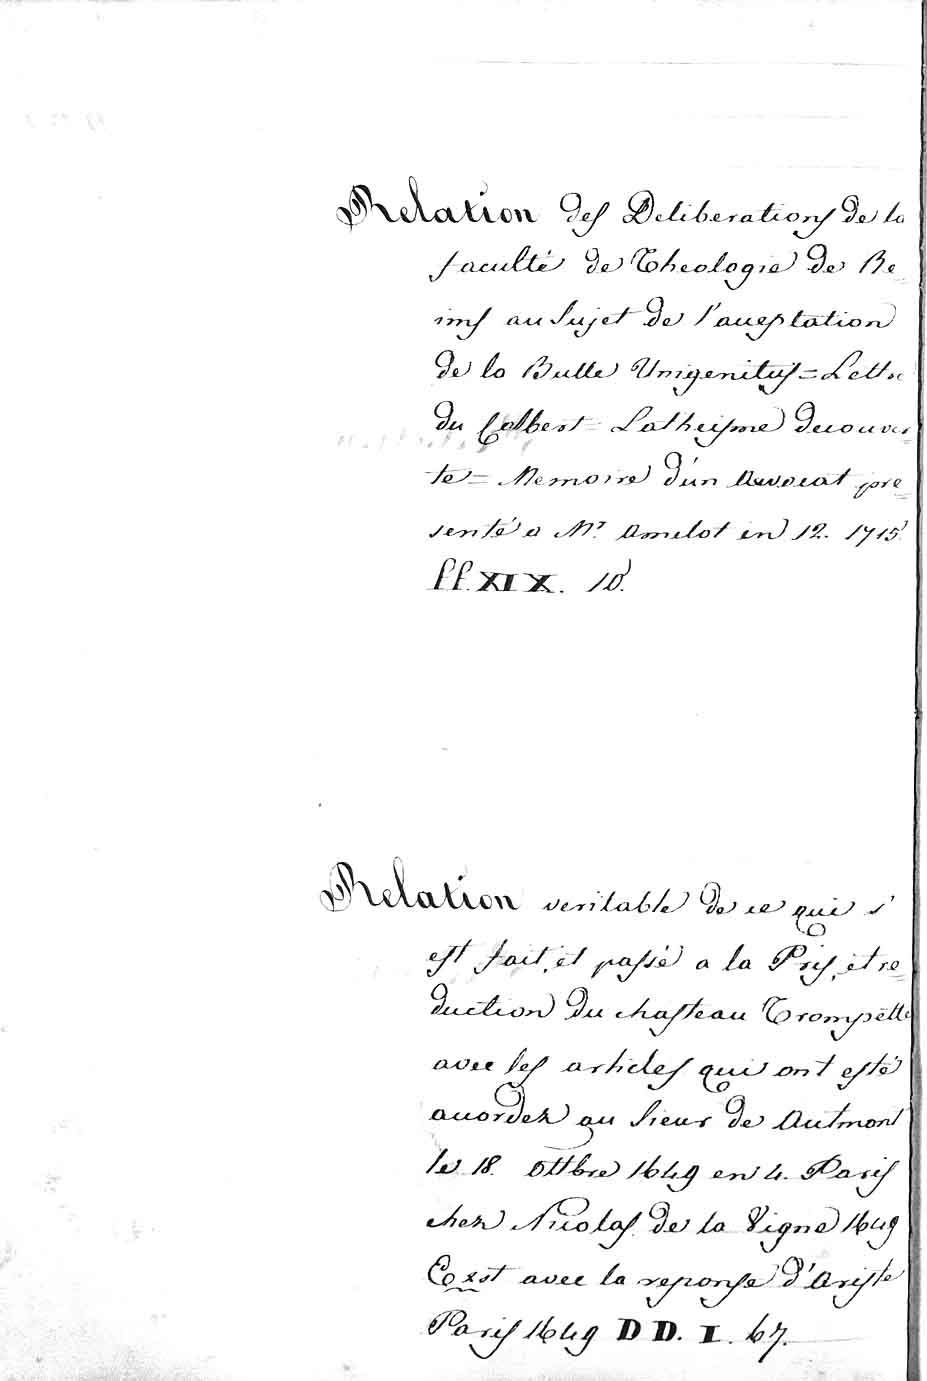 Relation des Deliberations de la
faculté de Theologie de Re=
ims au sujet de l'aueptation
de la Bulle Unigenitus = Lettre
du Colbert = Latheisme decouver
te = Memoire d'un Avocat pre=
senté a Mr. Amelot in 12. 1715
ff. XIX. 10.
Relation veritable de ce qui s'
est fait, et passé a la Pris, et re=
duction du chasteau Trompette
avec les articles qui ont esté
auordez au sieur de Autmont
le 18. Ottbre 1649 en 4. Paris
chez Nicolas de la Vigne 1649
Exst avec la reponse d'Ariste
Paris 1649 DD. I. 67.